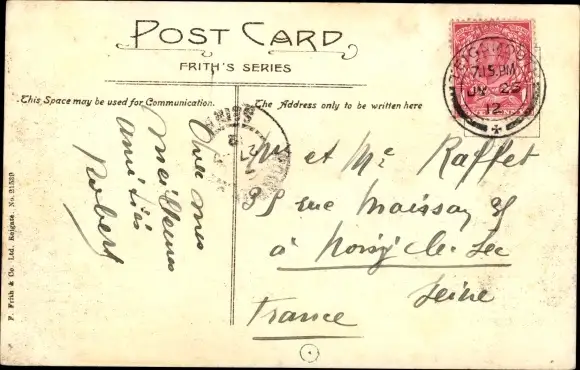 POST CARD
FRITH'S SERIES
This Space may be used for Communication.
The Address only to be written here
Avec mes
meilleures
amitiés
Robert
et Me Raffet
rue
à Noisy-le-Sec
Seine
France
7.15 PM
25
12
F. Frith & Co. Ltd., Reigate. No. 21539